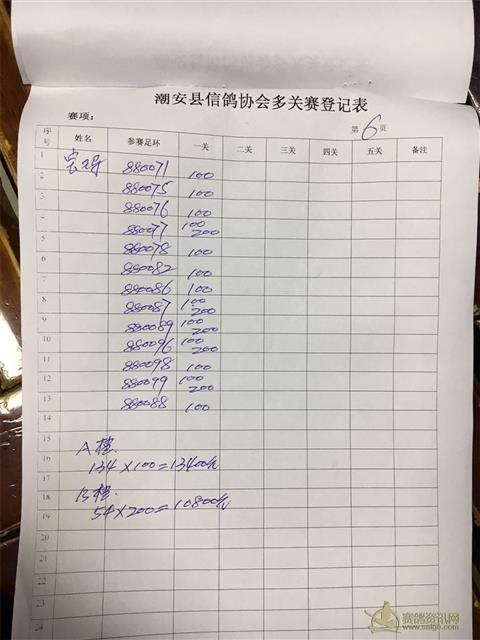 潮安县信鸽协会多关赛登记表
赛项：
第6页
序号 姓名 参赛足环 一关 二关 三关 四关 五关 备注
1 880071 100
2 880075 100
3 880076 100
4 880077 100 200
5 880078 100
6 880082 100
7 880086 100
8 880087 100 200
9 880089 100 200
10 880096 100 200
11 880098 100
12 880099 100 200
13 880088 100
14
15
A档
16
134×100=13400
17
18
B档.
54×200=10800
19
20
21
22
23
24
赛鸽资讯网
www.saige.com